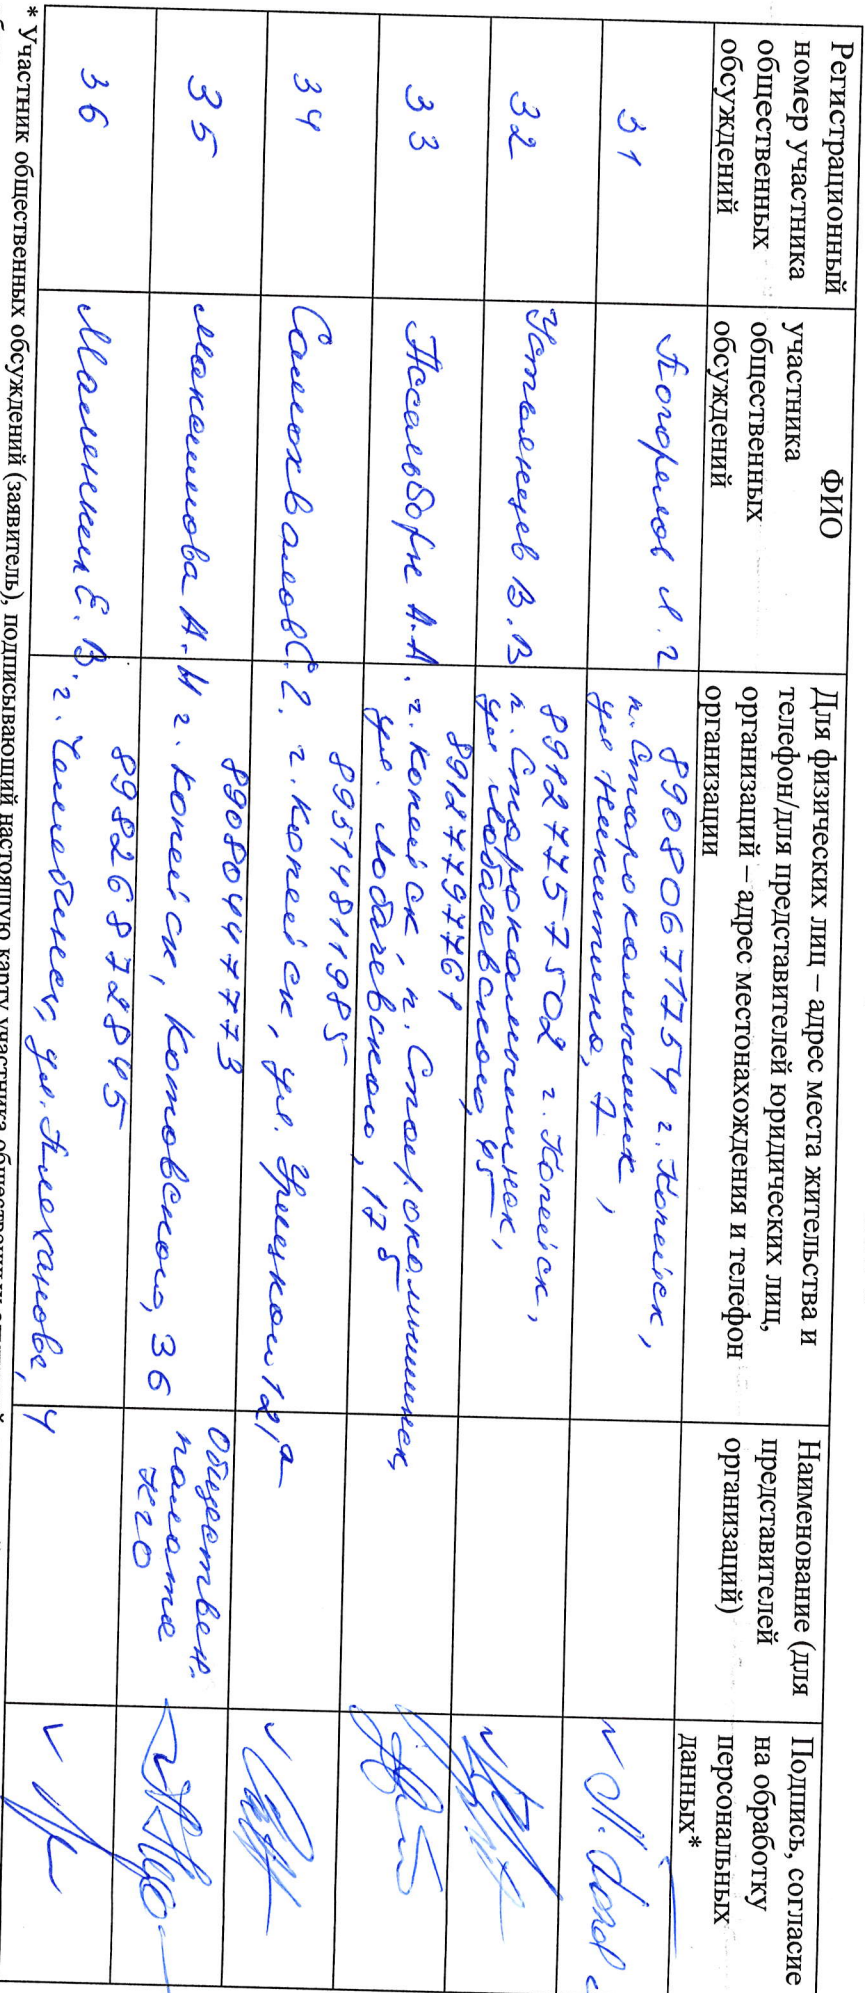 Регистрационный номер участника общественных обсуждений
ФИО участника общественных обсуждений
Для физических лиц – адрес места жительства и телефон/для представителей юридических лиц, организаций – адрес местонахождения и телефон организации
Наименование (для представителей организаций)
Подпись, согласие на обработку персональных данных*
31
Погорелов Л. Г
89080677754 г. Копейск,
п. Старокамышинск,
ул Никитина, 7
32
Устьянцев В. В
89127757502 г. Копейск,
п. Старокамышинск,
ул Лобачевского, 45
33
А. А.
89127797761
г. Копейск, п. Старокамышинск,
ул. Лобачевского, 17
34
Самохвалов С. Г.
89514811985
г. Копейск, ул. 12,а
35
Максимова А. И
89080447773
г. Копейск, Котовского, 36
Обществен.
палата
КГО
36
Маменкин Е. В.
89826872845
г. Челябинск, ул. Плеханова, 4
* Участник общественных обсуждений (заявитель), подписывающий настоящую карту участника общественных